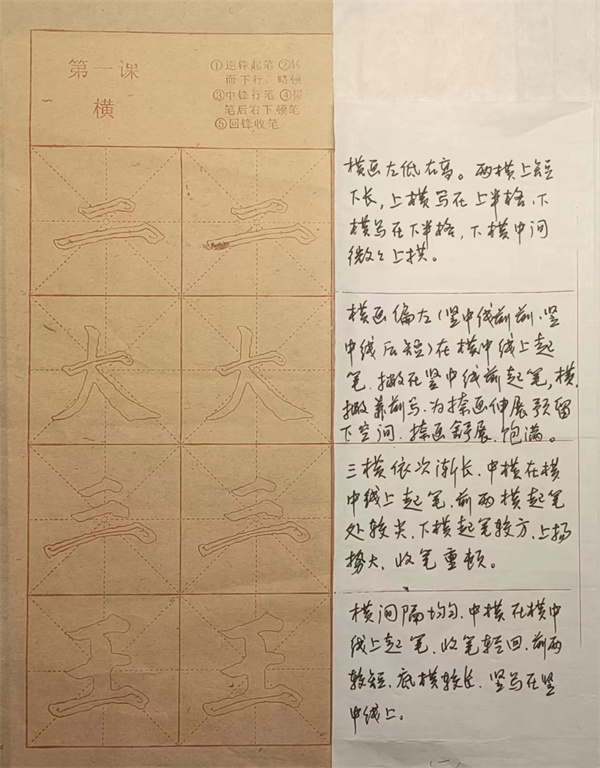 第一课
横
①逆锋起笔 ②转
而下行，略顿
③中锋行笔 ④提
笔后右下顿笔
⑤回锋收笔
二 二
大 大
三 三
王 王
横画左低右高。两横上短
下长，上横写在上半格、下
横写在下半格，下横中间
微微上拱。
横画偏左（竖中线前
中线后短）在横中线上起
笔、撇在竖中线前起笔，横、
撇靠前写、为捺画伸展预留
下空间、捺画舒展、饱满。
三横依次渐长、中横在横
中线上起笔、前两横起笔
处较尖、下横起笔较方、上扬
势大、收笔重顿。
横间隔均匀、中横在横中
线上起笔、收笔轻回、前两
较短、底横较长、竖写在竖
中线上。
（一）